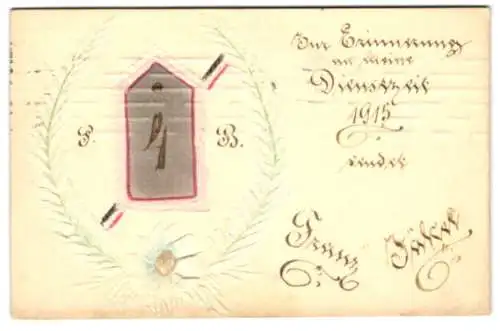 P. B.
9
Zur Erinnerung
an meine
Dienstzeit
1915
sendet
Franz Jäkel